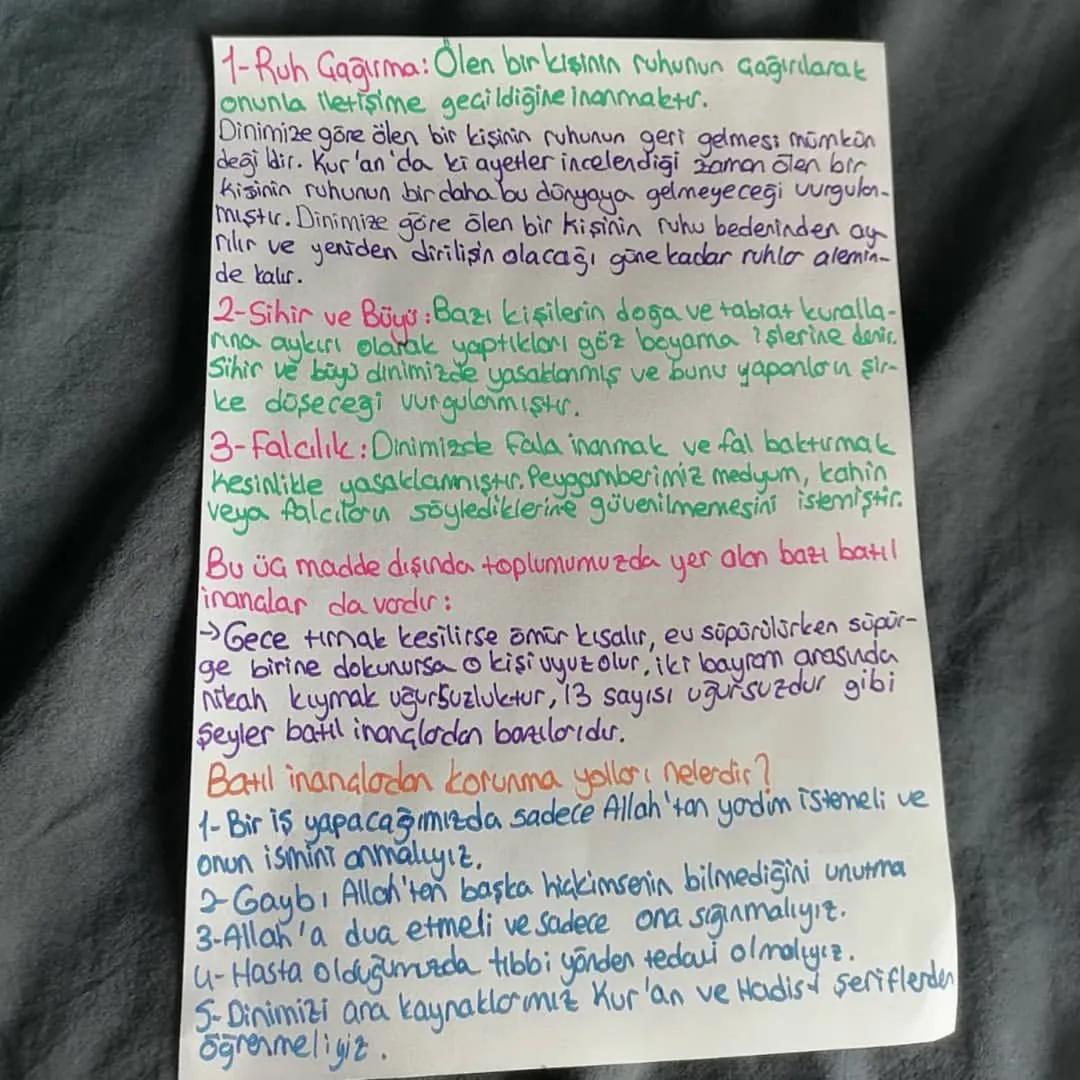 1-Ruh Çağırma: Ölen bir kişinin ruhunun çağırılarak
onunla iletişime geçildiğine inanmaktır.
Dinimize göre ölen bir kişinin ruhunun geri gelmesi mümkün
değildir. Kur'an'da ki ayetler incelendiği zaman ölen bir
kişinin ruhunun bir daha bu dünyaya gelmeyeceği vurgulan-
mıştır. Dinimize göre ölen bir kişinin ruhu bedeninden ay-
rılır ve yeniden dirilişin olacağı güne kadar ruhlar alemin-
de kalır.
2-Sihir ve Büyü: Bazı kişilerin doğa ve tabiat kuralla-
rına aykırı olarak yaptıkları göz boyama işlerine denir.
Sihir ve büyü dinimizde yasaklanmış ve bunu yapanların şir-
ke düşeceği vurgulanmıştır.
3-Falcılık: Dinimizde fala inanmak ve fal baktırmak
kesinlikle yasaklanmıştır. Peygamberimiz medyum, kahin
veya falcıların söylediklerine güvenilmemesini istemiştir.
Bu üç madde dışında toplumumuzda yer alan bazı batıl
inançlar da vardır:
→Gece tırnak kesilirse ömür kısalır, ev süpürülürken süpür-
ge birine dokunursa o kişi uyuz olur, iki bayram arasında
nikah kıymak uğursuzluktur, 13 sayısı uğursuzdur gibi
şeyler batıl inançlardan bazılarıdır.
Batıl inançlardan korunma yolları nelerdir?
1-Bir iş yapacağımızda sadece Allah'tan yardım istemeli ve
onun ismini anmalıyız.
2-Gaybı Allah'ten başka hiçkimsenin bilmediğini unutma
3-Allah'a dua etmeli ve sadece ona sığınmalıyız.
4-Hasta olduğumuzda tıbbi yönden tedavi olmalıyız.
5-Dinimizi ara kaynaklarımız Kur'an ve Hadis-i Şeriflerden
öğrenmeliyiz.